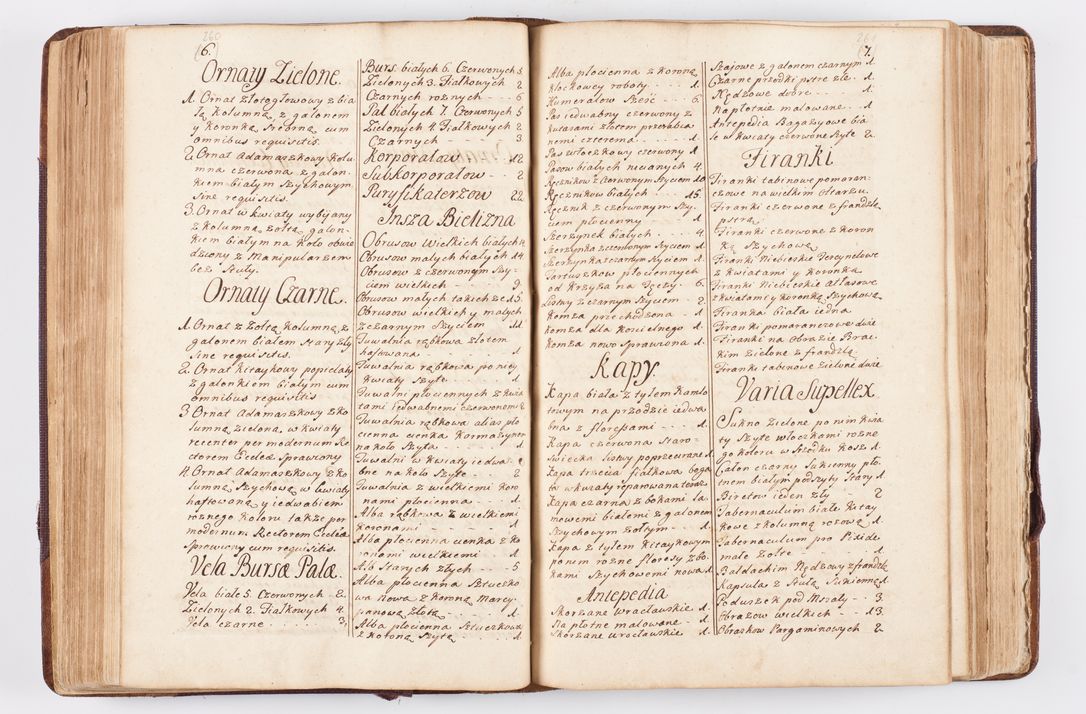 260
(6.
Ornaty Zielone.
1. Ornat złotogłowowy z bia
łą kolumną, z galonem
y koronką srebrną cum
omnibus requisitis.
2. Ornat Adamaszkowy kolu-
mna czerwona z galon-
kiem białym szychowym
sine requisitis.
3. Ornat w kwiaty wybijany
z kolumną żołtą galon-
kiem białym na koło obwie
dziony z Manipularzem
bez stuły.
Ornaty Czarne.
1. Ornat z żołtą kolumną, z
galonem białem stary zły
sine requisitis.
2. Ornat kitaykowy popielaty
z galonkiem białym cum
omnibus requisitis
3. Ornat Adamaszkowy z ko
lumną zieloną, w kwiaty
recenter per modernum Re
ctorem Eccleæ sprawiony
4. Ornat Adamaszkowy z ko
lumną szychową w kwiaty
haftowaną y iedwabiem
rożnego koloru także per
modernum Rectorem Eccleæ
sprawiony cum requisitis.
Vela Bursæ Palæ.
Vela białe 5. Czerwonych - 2.
Zielonych 2. Fiałkowych 4.
Vela czarne - - - 3.
Burs. białych 6. Czerwonych 5
Zielonych 3. Fiałkowych 2
Czarnych rożnych - - - 6
Pal białych 7. Czerwonych 5
Zielonych 4. Fiałkowych 2
Czarnych - - - 3
Korporałow - - - 12
Subkorporałow - - 2
Puryfikaterzow - - 22
Insza Bielizna
Obrusow Wielkich białych 4.
Obrusow małych białych 14
Obrusow z czerwonym szy-
ciem wielkich - - - 9.
Obrusow małych takich że 15.
Obrusow wielkich y małych
z czarnym szyciem - - 11
Tuwalnia rąbkowa złotem
haftowana - - - 1
Tuwalnia rąbkowa po niey
kwiaty szyte - - - 1
Tuwalni płociennych z kwia
tami iedwabnemi czerwonemi 2
Tuwalnia rąbkowa alias pło
cienna cienka Kormazynem
na koło szyta - - - 1
Tuwalni w kwiaty iedwa-
bne na koło szyte - - 2
Tuwalnia z wielkiemi koro
nami płocienna - - - 1
Alba rąbkowa z wielkiemi
koronami - - - 1
Alba płocienna cienka z ko
ronami wielkiemi - - 1
Alb starych złych - - - 5
Alba płocienna sztuczko
wa nowa z koroną Marcy-
panową złotą - - - 1
Alba płocienna sztuczkowa
z koroną szytą - - - 1.
261
(7.
Alba płocienna z koroną
klockowey roboty - - - 1.
Humerałow sześć - - 6.
Pas iedwabny czerwony z
kutasami złotem przerabia
nemi czterema - - - 1
Pas włoczkowy czerwony 1
Pasow białych nicianych 4.
Ręcznikow z czerwonym szyciem 10
Ręcznikow białych - - 15.
Ręcznik z czerwonym szy-
ciem płocienny - - - 1
Szerzynek białych - - - 4.
Szerzynka z zielonym szyciem 1.
Szerzynka z czarłym szyciem 1.
Fartuszkow płociennych
od Krzyża na Ręczy - 6.
Listwy z czarnym szyciem - 2.
Komża przechodzona - - 1.
Komża dla Kościelnego 1.
Komża nowo sprawiona 1.
Kapy.
Kapa biała z tyłem kamlo
towym na przodzie iedwa
bna z floressami - - - 1.
Kapa czerwona staro-
świecka listwy poprzecierane 1
Kapa trzecia fiałkowa boga
ta w kwiaty reparowana teraz
Kapa czarna z bokami la
mowemi białemi z galonem
szychowym żołtym - - 1.
Kapa z tyłem kitaykowym
ponem rożne floresy z bo-
kami szychowemi nowa 1
Antepedia
Skorzane wracławskie 1.
Na płotne malowane - 1.
Skorzane wrocławskie 1.
Szajowe z galonem czarnym 1.
Czarne przodki pstre złe - 1.
Nędzowe dobre - - - 1.
Na płotnie malowane - 1.
Antepedia Bagazyowe bia
łe w kwiaty czerwone szyte 2.
Firanki
Firanki tabinowe pomaran-
czowe na wielkim Ołtarzu.
Firanki czerwone z frandzlą
pstrą.
Firanki czerwone z koron
ką szychową
Firanki Niebieskie Tercynelowe
z kwiatami y koronką.
Firanki Niebieskie Atłasowe
z kwiatami y koronką szychową
Firanka biała iedna
Firanki pomaranczowe dwie
Firanki na obrazie Brac-
kim zielone z frandzlą
Firanki tabinowe zielone dwie
Varia Supellex
Sukno zielone po nim kwia
ty szyte włoczkami rożne
go koloru w środku kosz 1.
Całon czarny sukienny pło-
tnem białym podszyty stary 1
Biretow ieden zły - - 2
Tabernaculum białe kitay
kowe z kolumną rożową 1.
Tabernaculum pro Pixide
małe żołte - - - 1.
Baldachim Nędzowy z frandzlą
Kapsuła z stułą sukienną 1.
Poduszek pod Mszały - - 3.
Obrazow wielkich - - 13.
Obrazkow Pargaminowych 2.